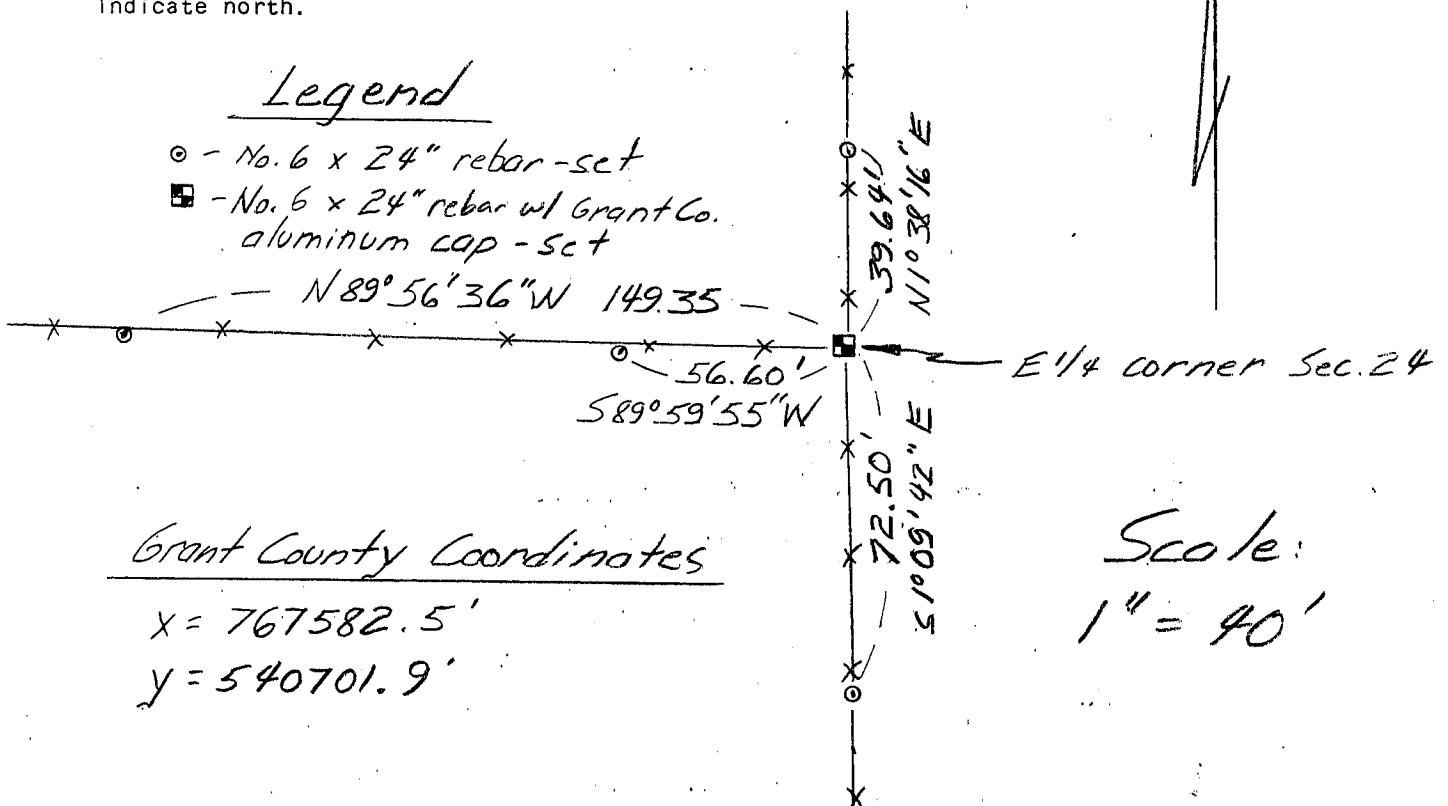 indicate north.
Legend
⊙ - No. 6 x 24" rebar - set
- No. 6 x 24" rebar w/ Grant Co.
aluminum cap - set
N 89° 56' 36" W 149.35
39.64'
N 1° 38' 16" E
E 1/4 corner Sec. 24
56.60'
S 89° 59' 55" W
72.50'
S 1° 09' 42" E
Grant County Coordinates
x = 767582.5'
y = 540701.9'
Scale:
1" = 40'